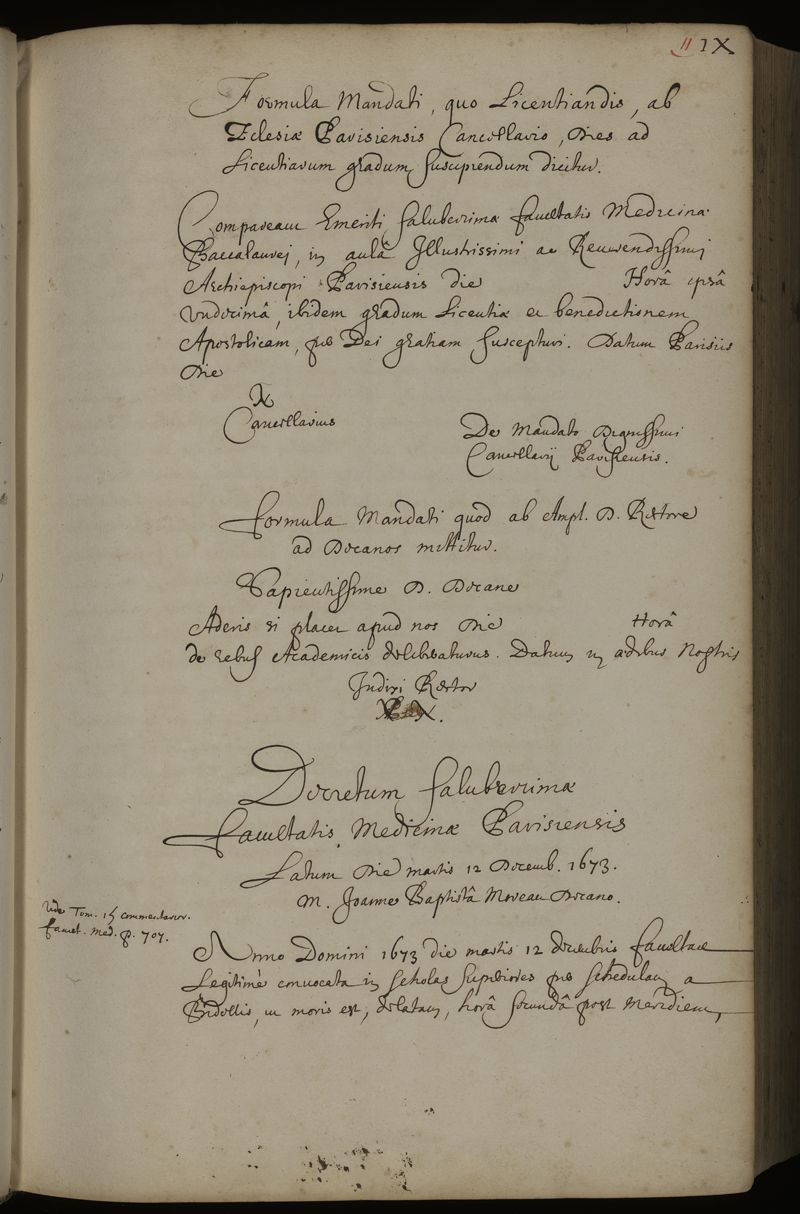 11 IX
Formula Mandati, quo Licentiandis, ab
Eclesiæ Parisiensis Cancellario, Dies ad
Licentiarum gradum suscipiendum dicitur.
Compareant Emeriti saluberrimæ facultatis Medicinæ
Baccalaurej, in aulâ Illustrissimi ac Reuerendissimj
Archiepiscopi Parisiensis die Horâ ipsâ
vndecimâ, ibidem gradum Licentiæ et benedictionem
Apostolicam, per Dei gratiam suscepturi. Datum Parisiis
Die
N
Cancellarius
De Mandato Dignissimi
Cancellarij Parisiensis.
formula Mandati quod ab Ampl. D. Rectore
ad Decanos mittitur.
Sapientissime D. Decane
Aderis si placet apud nos Die Horâ
de rebus Academicis deliberaturus. Datum in ædibus Nostris
Indixi Rector
N.
Decretum saluberrimæ
facultatis Medicinæ Parisiensis
Latum Die martis 12 Decemb. 1673.
M. Joanne Baptistâ Moreau Decano.
Vide Tom. 15 commentarior.
facult. Med. p. 707.
Anno Domini 1673 die martis 12 decembris facultate
Legitimè conuocata in scholas superiores per schedulam a
Bidellis, ut moris est, delatam, horâ secundâ post Meridiem,